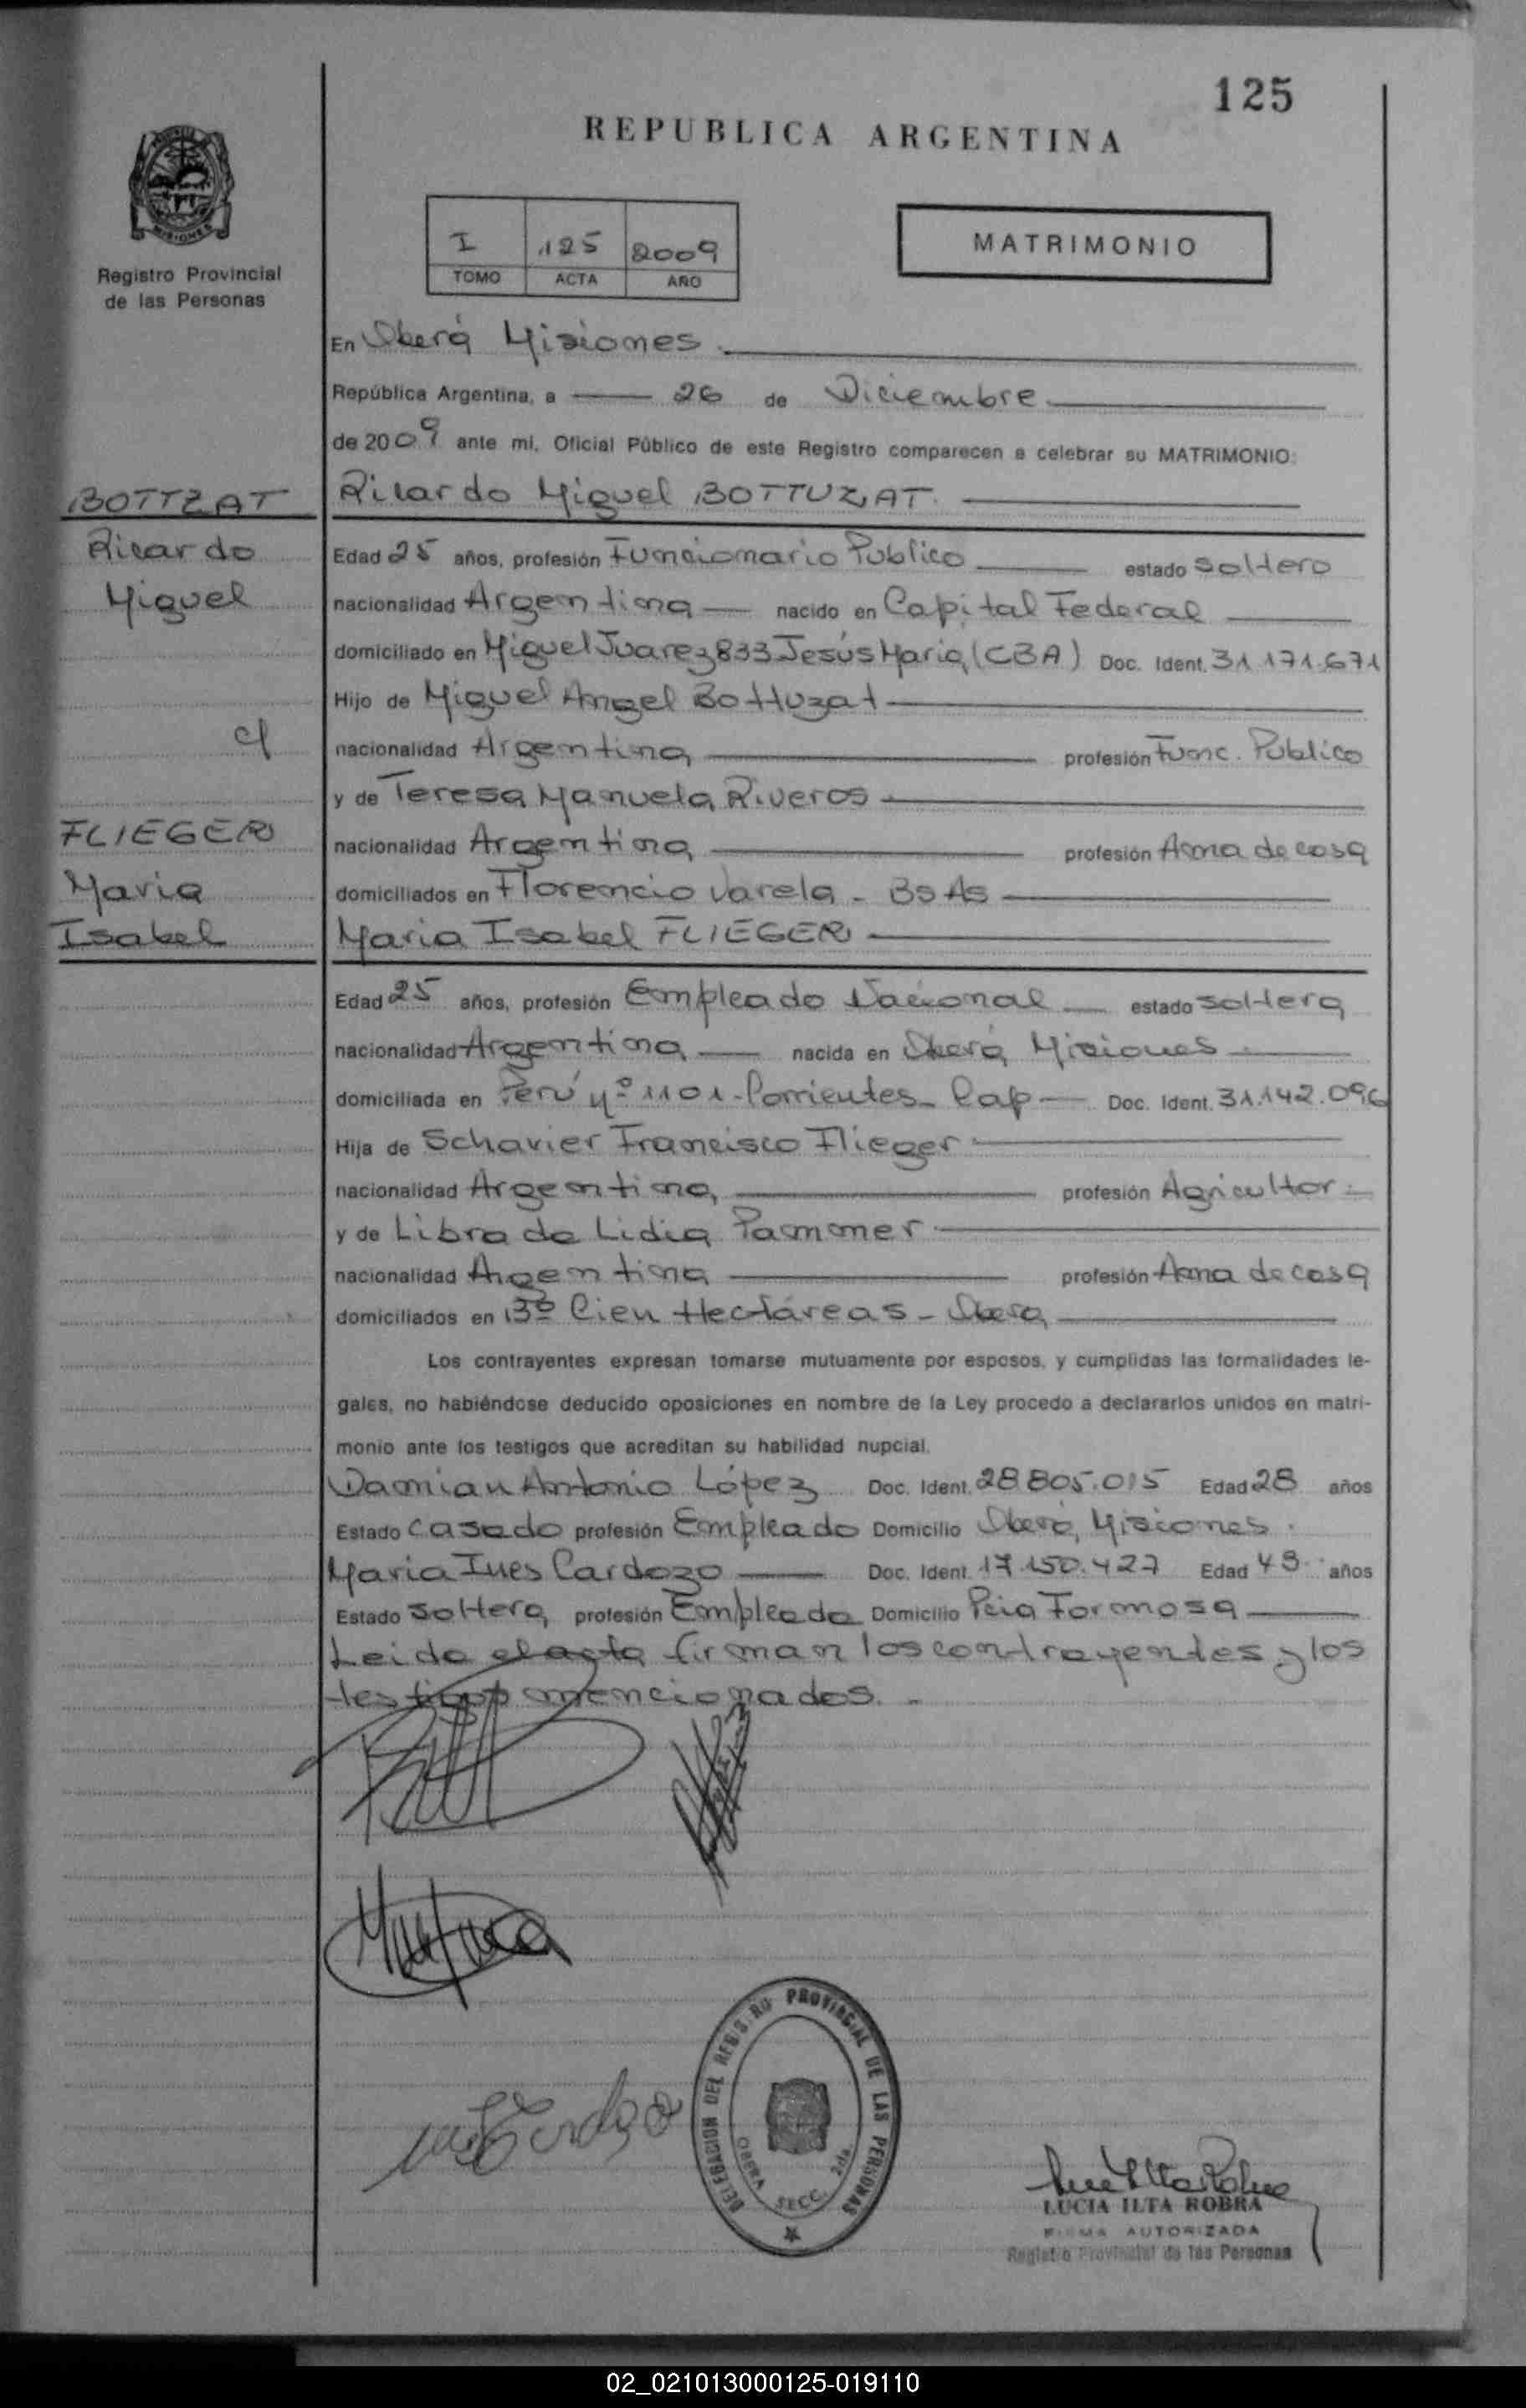 125
REPUBLICA ARGENTINA
MISIONES
Registro Provincial
de las Personas
I 125 2009
TOMO ACTA AÑO
MATRIMONIO
En Oberá Misiones
República Argentina, a 26 de Diciembre
de 2009 ante mi, Oficial Público de este Registro comparecen a celebrar su MATRIMONIO:
BOTTZAT
Ricardo
Miguel
c/
FLIEGER
Maria
Isabel
Ricardo Miguel BOTTUZAT
Edad 25 años, profesión Funcionario Publico estado soltero
nacionalidad Argentina nacido en Capital Federal
domiciliado en Miguel Juarez 833 Jesús Maria (CBA) Doc. Ident. 31.171.671
Hijo de Miguel Angel Bottuzat
nacionalidad Argentina profesión Func. Publico
y de Teresa Manuela Riveros
nacionalidad Argentina profesión Ama de casa
domiciliados en Florencio Varela - Bs As
Maria Isabel FLIEGER
Edad 25 años, profesión Empleado Nacional estado soltera
nacionalidad Argentina nacida en Oberá Misiones
domiciliada en Perú Nº 1101 - Corrientes - Cap Doc. Ident. 31.142.096
Hija de Schavier Francisco Flieger
nacionalidad Argentina profesión Agricultor
y de Librada Lidia Pammer
nacionalidad Argentina profesión Ama de casa
domiciliados en Bº Cien Hectáreas - Obera
Los contrayentes expresan tomarse mutuamente por esposos, y cumplidas las formalidades le-
gales, no habiéndose deducido oposiciones en nombre de la Ley procedo a declararlos unidos en matri-
monio ante los testigos que acreditan su habilidad nupcial.
Damian Antonio López Doc. Ident. 28.805.015 Edad 28 años
Estado casado profesión Empleado Domicilio Oberá, Misiones.
Maria Ines Cardozo Doc. Ident. 17.150.427 Edad 43 años
Estado soltera profesión Empleada Domicilio Pcia Formosa
Leida el acta firman los contrayentes y los
testigos mencionados.
DELEGACION DEL REGISTRO PROVINCIAL DE LAS PERSONAS
OBERA SECC. 2da.
LUCIA ILTA ROBRA
FIRMA AUTORIZADA
Registro Provincial de las Personas
02_021013000125-019110